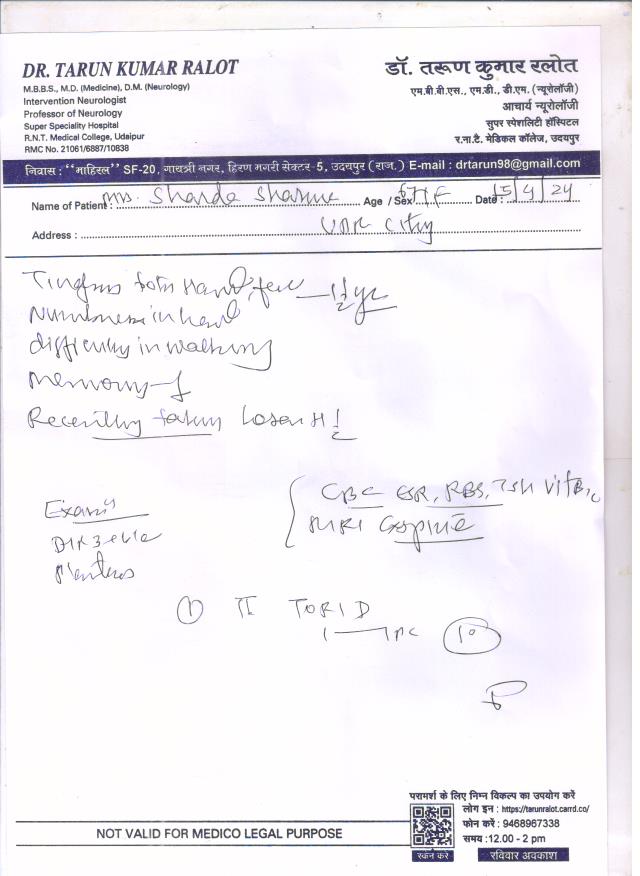 DR. TARUN KUMAR RALOT
M.B.B.S., M.D. (Medicine), D.M. (Neurology)
Intervention Neurologist
Professor of Neurology
Super Speciality Hospital
R.N.T. Medical College, Udaipur
RMC No. 21061/6887/10838
डॉ. तरूण कुमार रलोत
एम.बी.बी.एस., एम.डी., डी.एम. (न्यूरोलॉजी)
आचार्य न्यूरोलॉजी
सुपर स्पेशलिटी हॉस्पिटल
र.ना.टै. मेडिकल कॉलेज, उदयपुर
निवास : "माहिरल" SF-20, गायत्री नगर, हिरण मगरी सेक्टर-5, उदयपुर (राज.) E-mail : drtarun98@gmail.com
Name of Patient : Mrs. Sharda Sharma Age / Sex 67/F Date : 15/4/24
Address : UDR City
both Hand, feet 1½ yr
Numbness in hand
difficulty in walking
memory
Recently taking Losar H ½
CBC ESR, RBS, TSH Vit B12
MRI C spine
Exam
Planters
① TORID
10
परामर्श के लिए निम्न विकल्प का उपयोग करें
लोग इन : https://tarunralot.carrd.co/
फोन करें : 9468967338
समय :12.00 - 2 pm
स्कैन करें
रविवार अवकाश
NOT VALID FOR MEDICO LEGAL PURPOSE